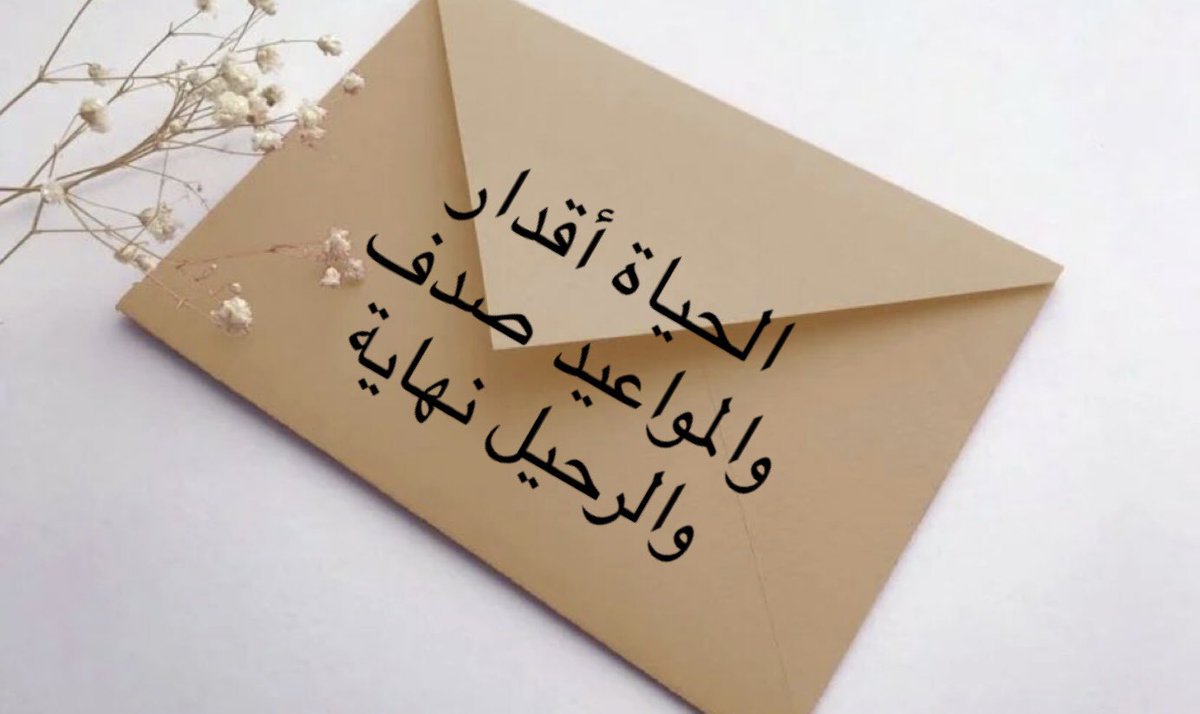 الحياة أقدار
والمواعيد صدف
والرحيل نهاية